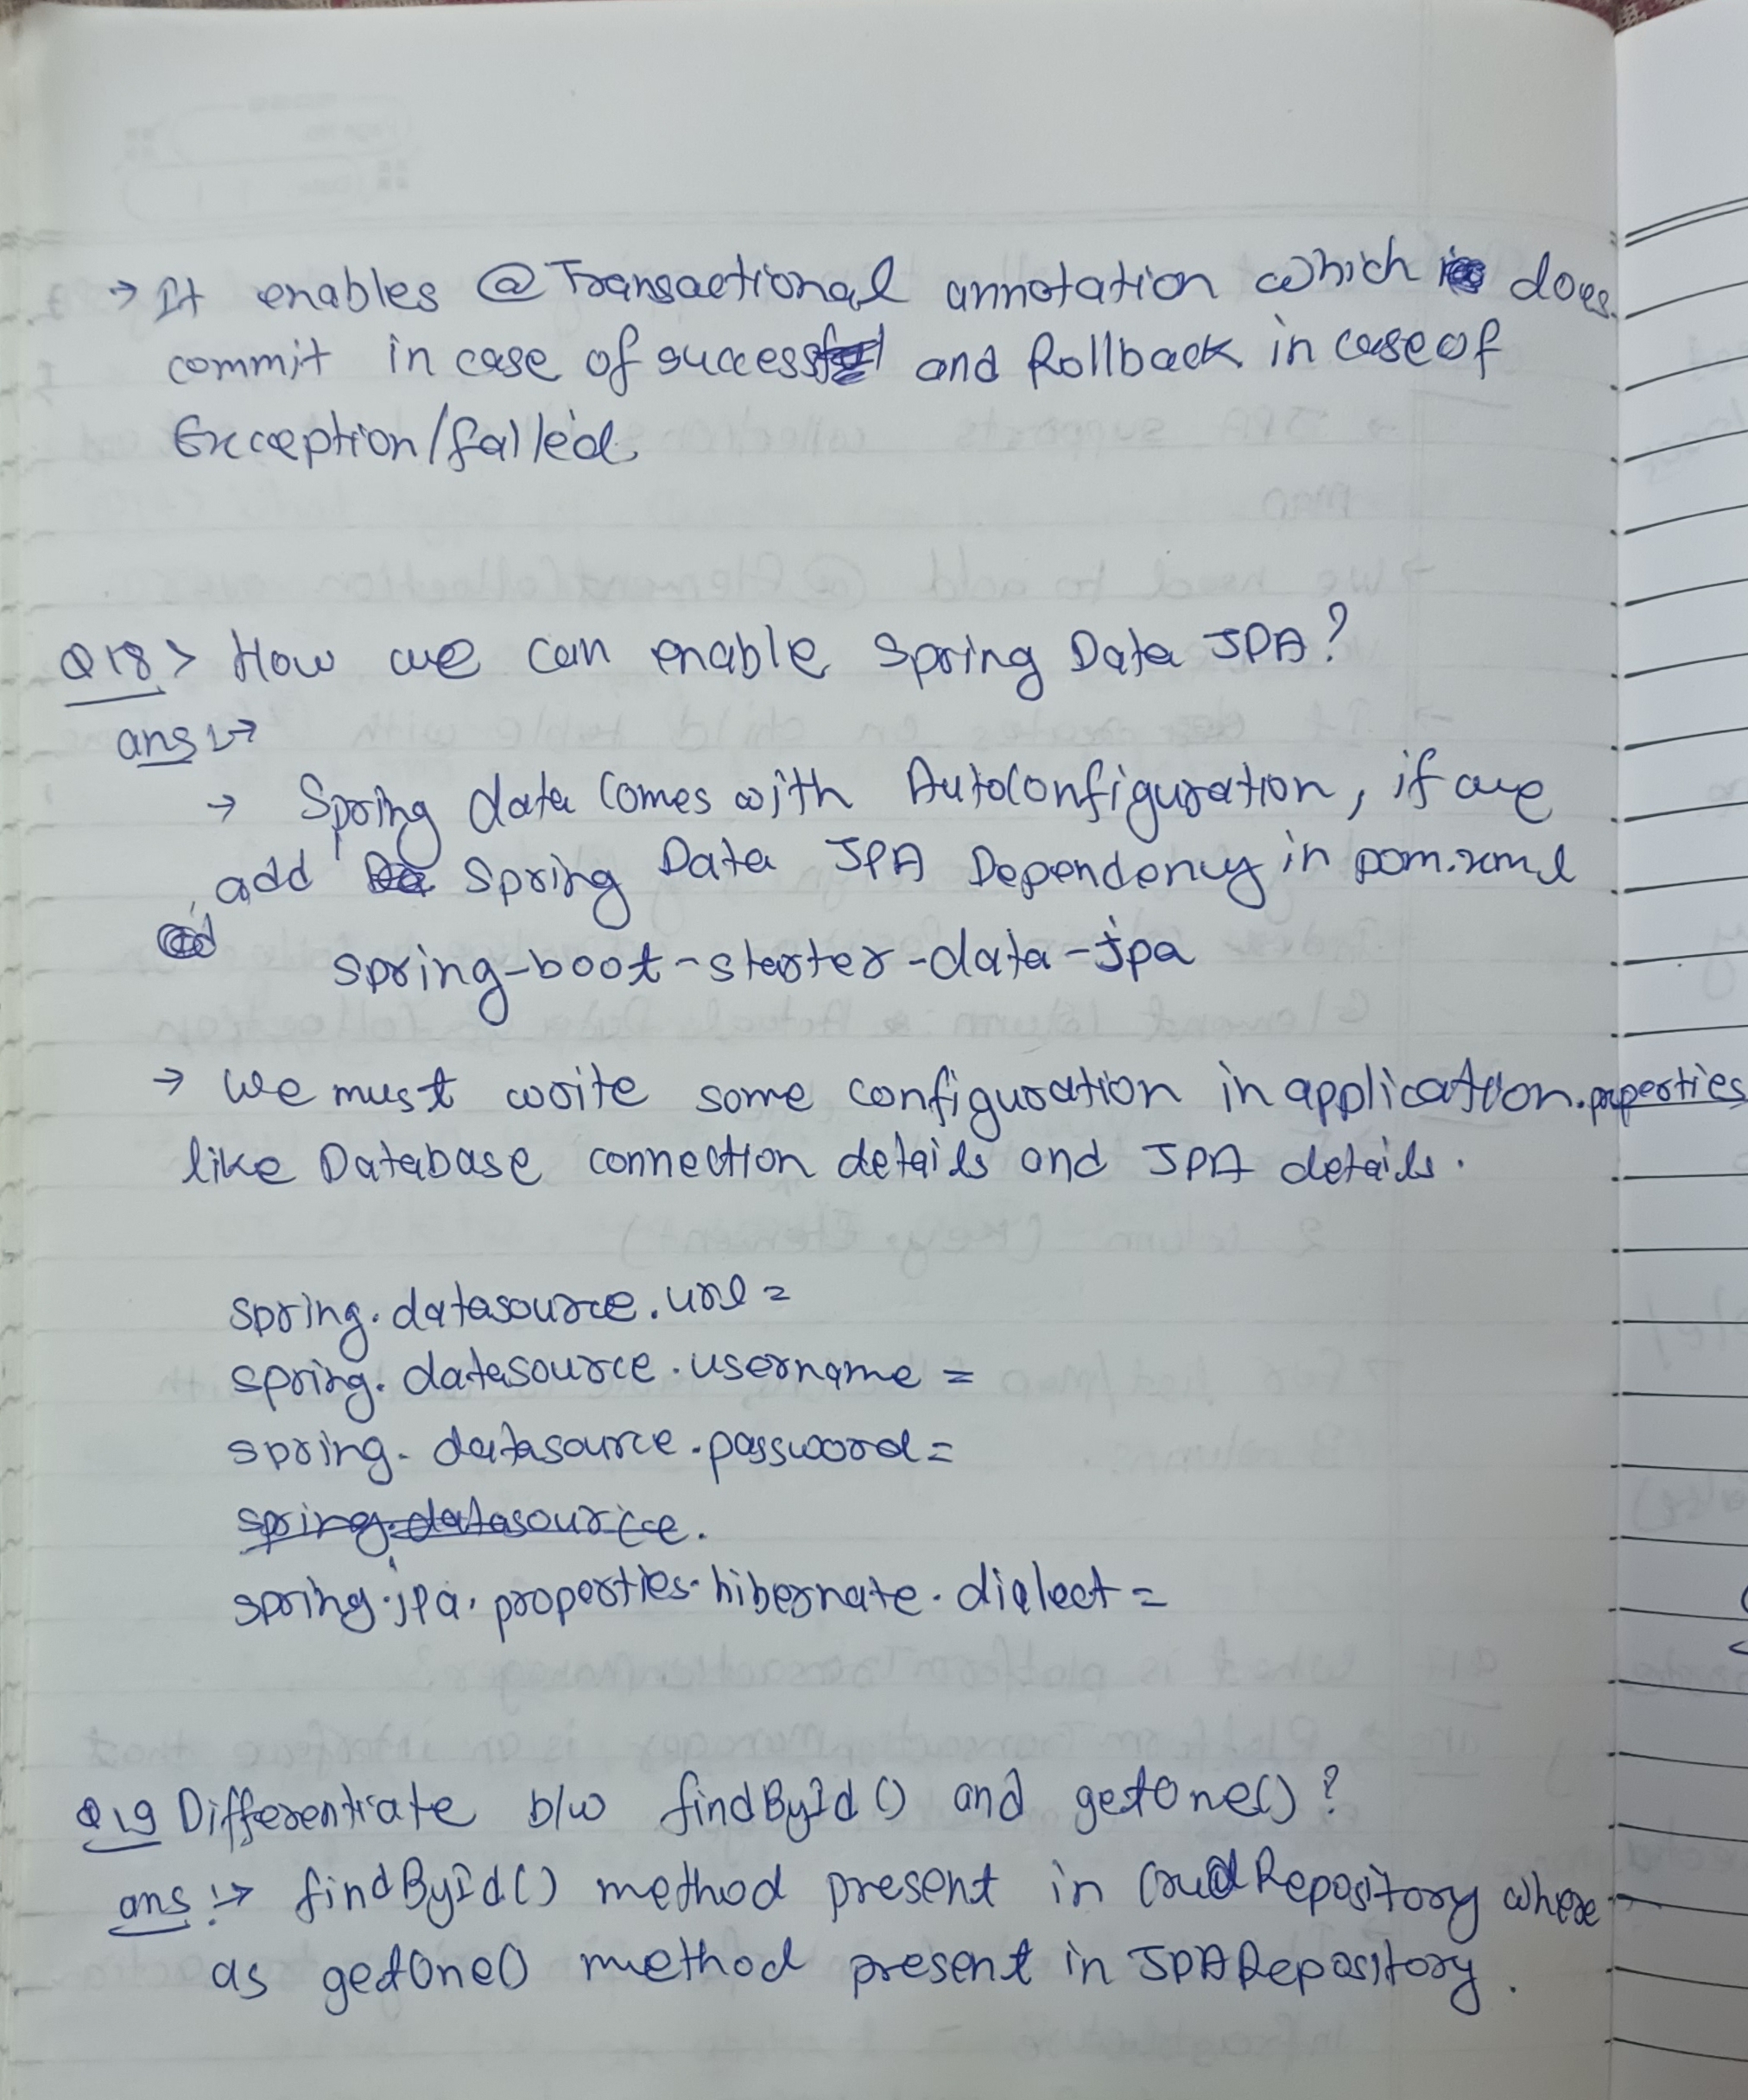 → It enables @Transactional annotation which does
commit in case of success and Rollback in case of
Exception/failed.
Q18> How we can enable Spring Data JPA?
ans :→
→ Spring data comes with AutoConfiguration, if we
add Spring Data JPA Dependency in pom.xml
spring-boot-starter-data-jpa
→ We must write some configuration in application.properties
like Database connection details and JPA details.
spring.datasource.url=
spring.datasource.username=
spring.datasource.password=
spring.datasource.
spring.jpa.properties.hibernate.dialect=
Q19 Differentiate b/w findById() and getOne()?
ans :→ findById() method present in CrudRepository where
as getOne() method present in JPARepository.